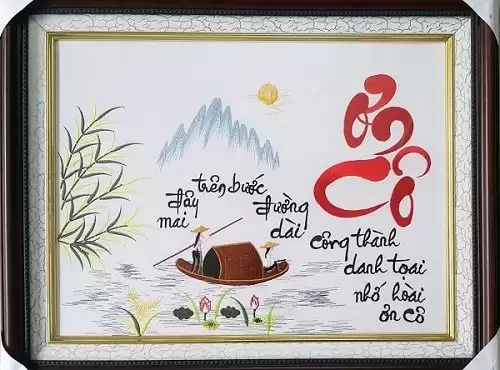 Ơn
Cô
đây
mai
trên bước
đường
dài
công thành
danh tọai
nhớ hoài
ơn cô